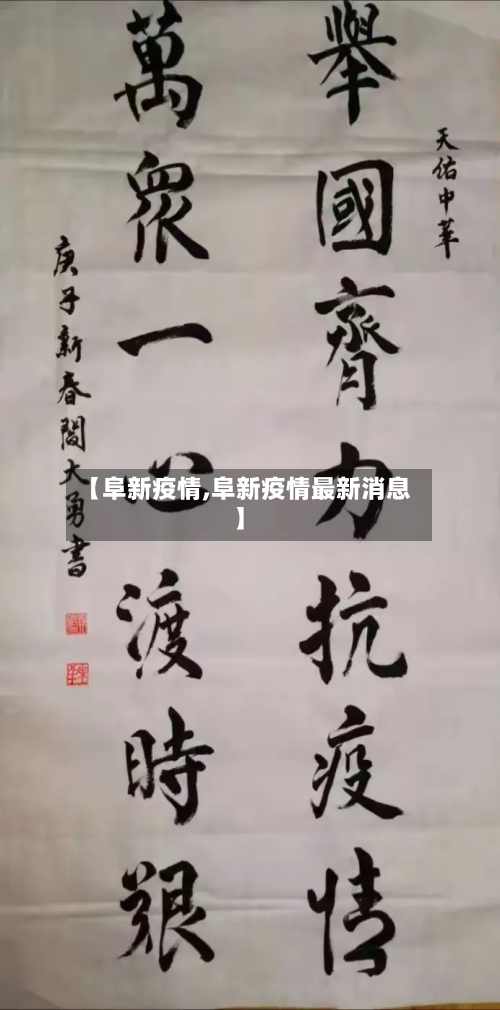 天佑中華
舉國齊力抗疫情
萬眾一心渡時艱
庚子新春閻大勇書
【阜新疫情,阜新疫情最新消息
】